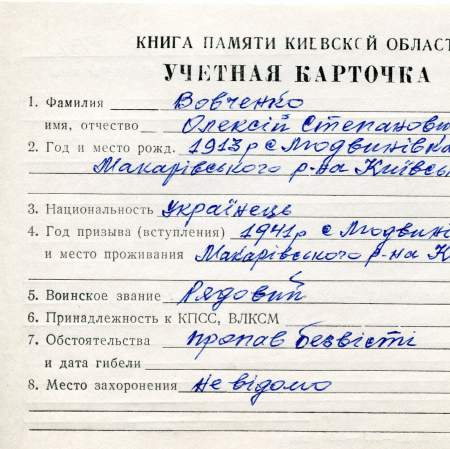 КНИГА ПАМЯТИ КИЕВСКОЙ ОБЛАСТ
УЧЕТНАЯ КАРТОЧКА
1. Фамилия Вовченко
имя, отчество Олексій Степанови
2. Год и место рожд. 1913р с Людвинівка
Макарівського р-на Київсь
3. Национальность українець
4. Год призыва (вступления) 1941р с Людвин
и место проживания Макарівського р-на К
5. Воинское звание Рядовий
6. Принадлежность к КПСС, ВЛКСМ
7. Обстоятельства пропав безвісті
и дата гибели
8. Место захоронения не відомо